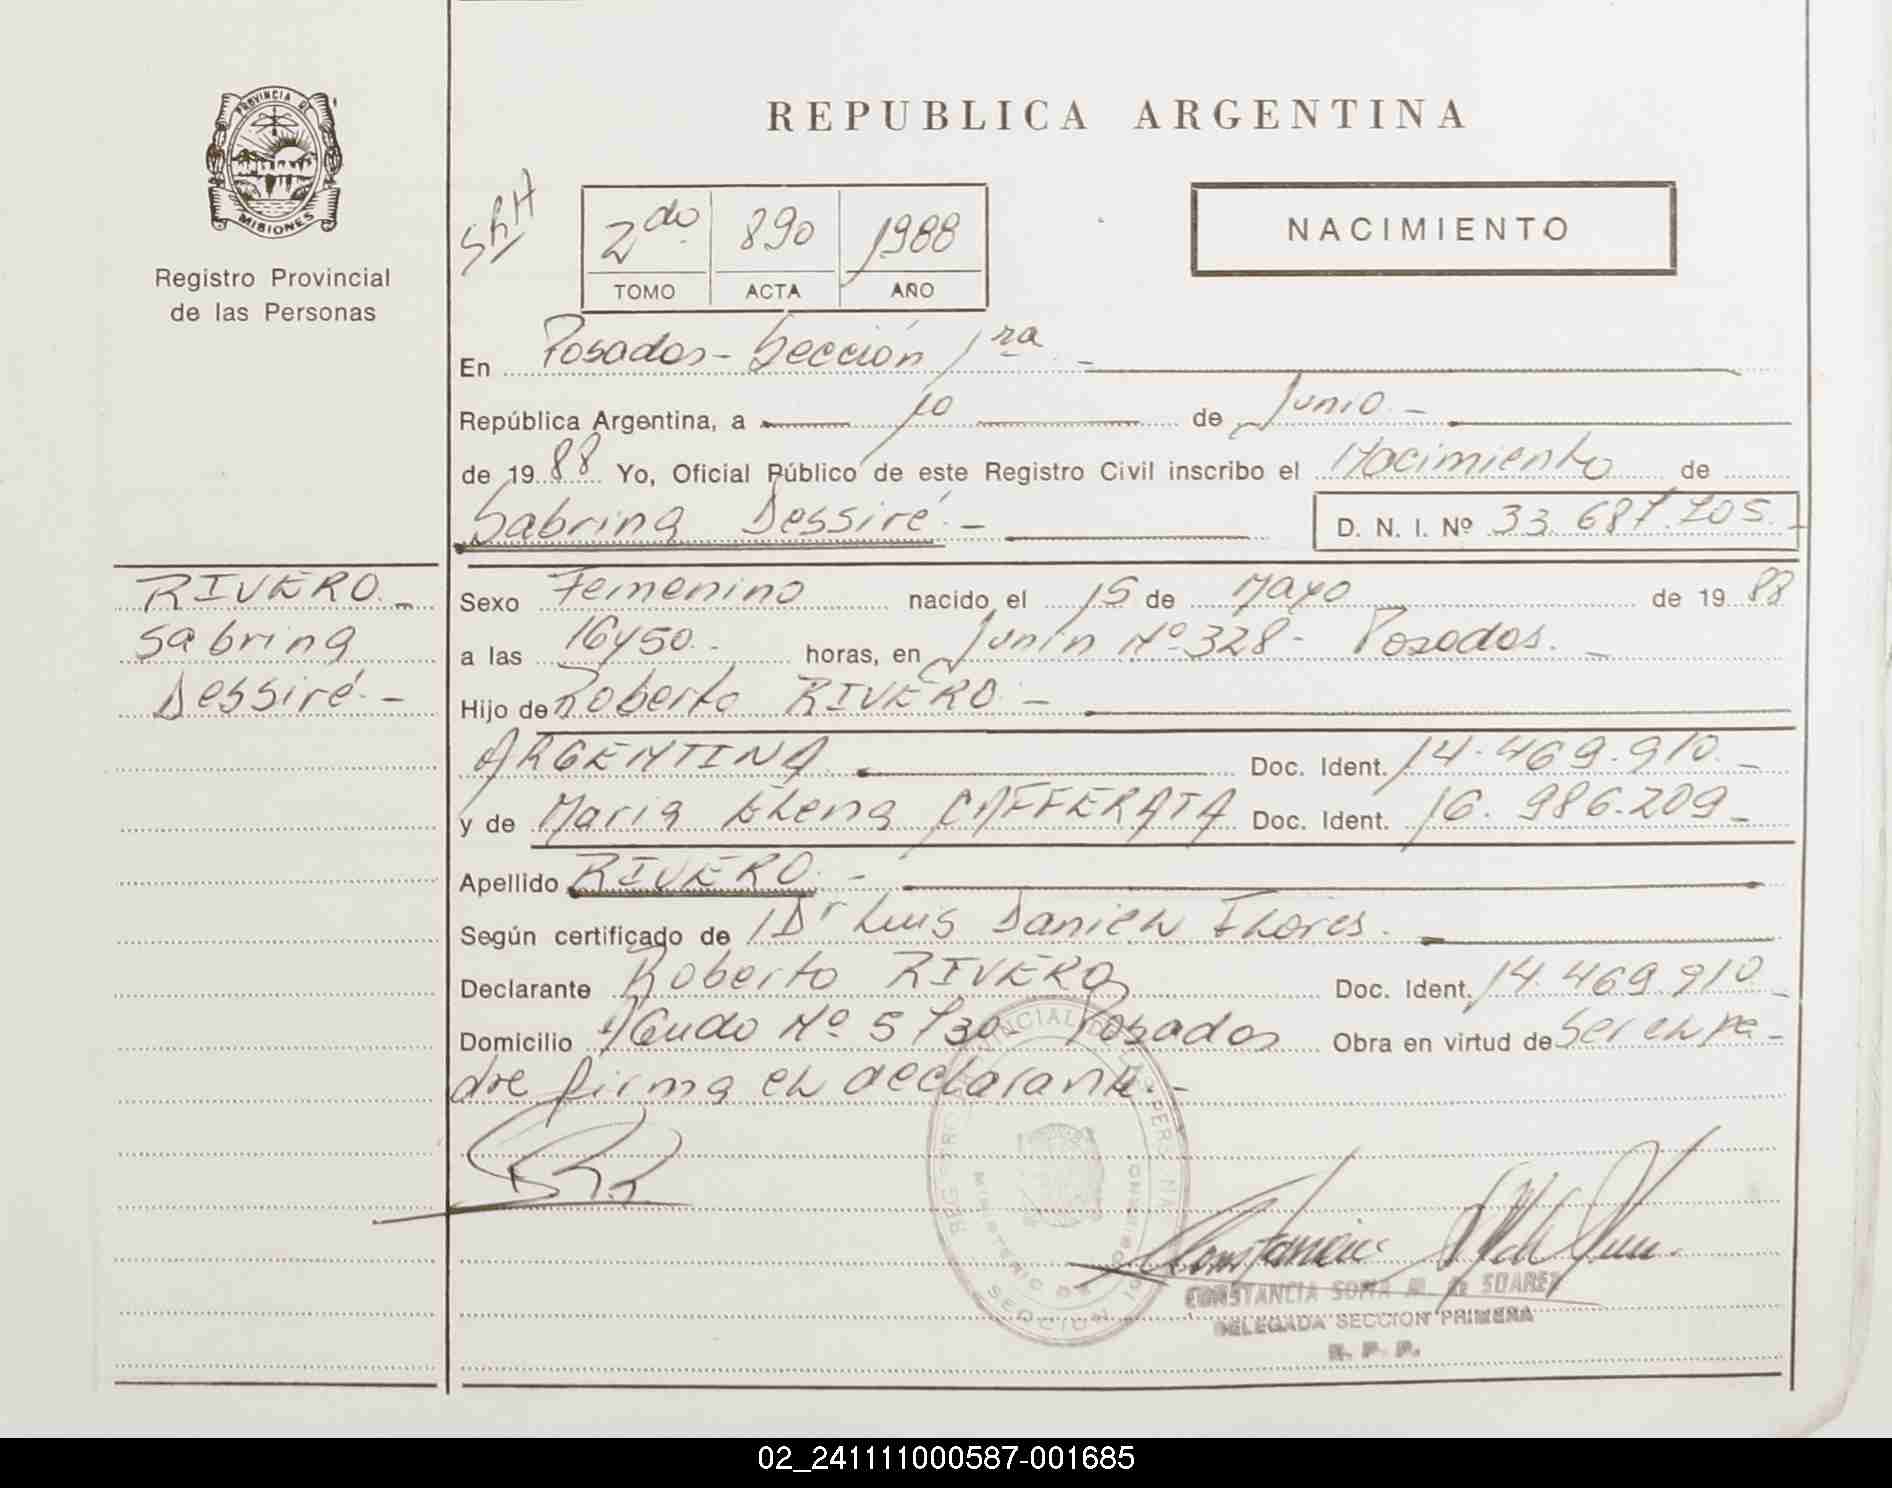 PROVINCIA DE
MISIONES
Registro Provincial
de las Personas
REPUBLICA ARGENTINA
2do 890 1988
TOMO ACTA AÑO
NACIMIENTO
En Posadas - Sección 1ra -
República Argentina, a 10 de Junio. -
de 1988 Yo, Oficial Público de este Registro Civil inscribo el Nacimiento de
Sabrina Dessiré. - D. N. I. Nº 33.687.205. -
RIVERO. -
Sabrina
Dessiré. -
Sexo Femenino nacido el 15 de Mayo de 1988
a las 16y50. - horas, en Junín Nº 328 - Posadas. -
Hijo de Roberto RIVERO. -
ARGENTINA Doc. Ident. 14.469.910. -
y de Maria Elena CAFFERATA Doc. Ident. 16.986.209 -
Apellido RIVERO. -
Según certificado de Dr Luis Daniel Flores.
Declarante Roberto RIVERO Doc. Ident. 14.469.910 -
Domicilio Nº Posadas Obra en virtud de Ser el pa-
dre firma el declarante. -
CONSTANCIA SOFIA M. de SUAREZ
DELEGADA SECCION PRIMERA
R. P. P.
02_241111000587-001685